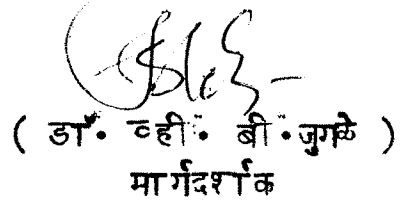 ( डॉ. व्ही. बी. जुगळे )
मार्गदर्शक